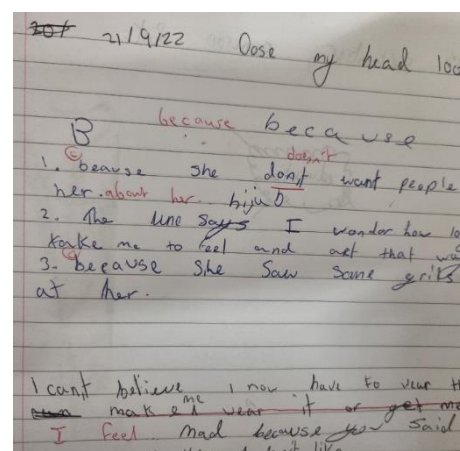 21/9/22 Dose my head loo
because because
B
doesn't
1. beause she don't want peaple
her. about her. hijub
2. The line says I wonder how lo
take me to feel and act that wa
3- because she saw sane grils
at her.
I can't believe I now have to wear th
me
make I wear it or get me
I feel mad because you said